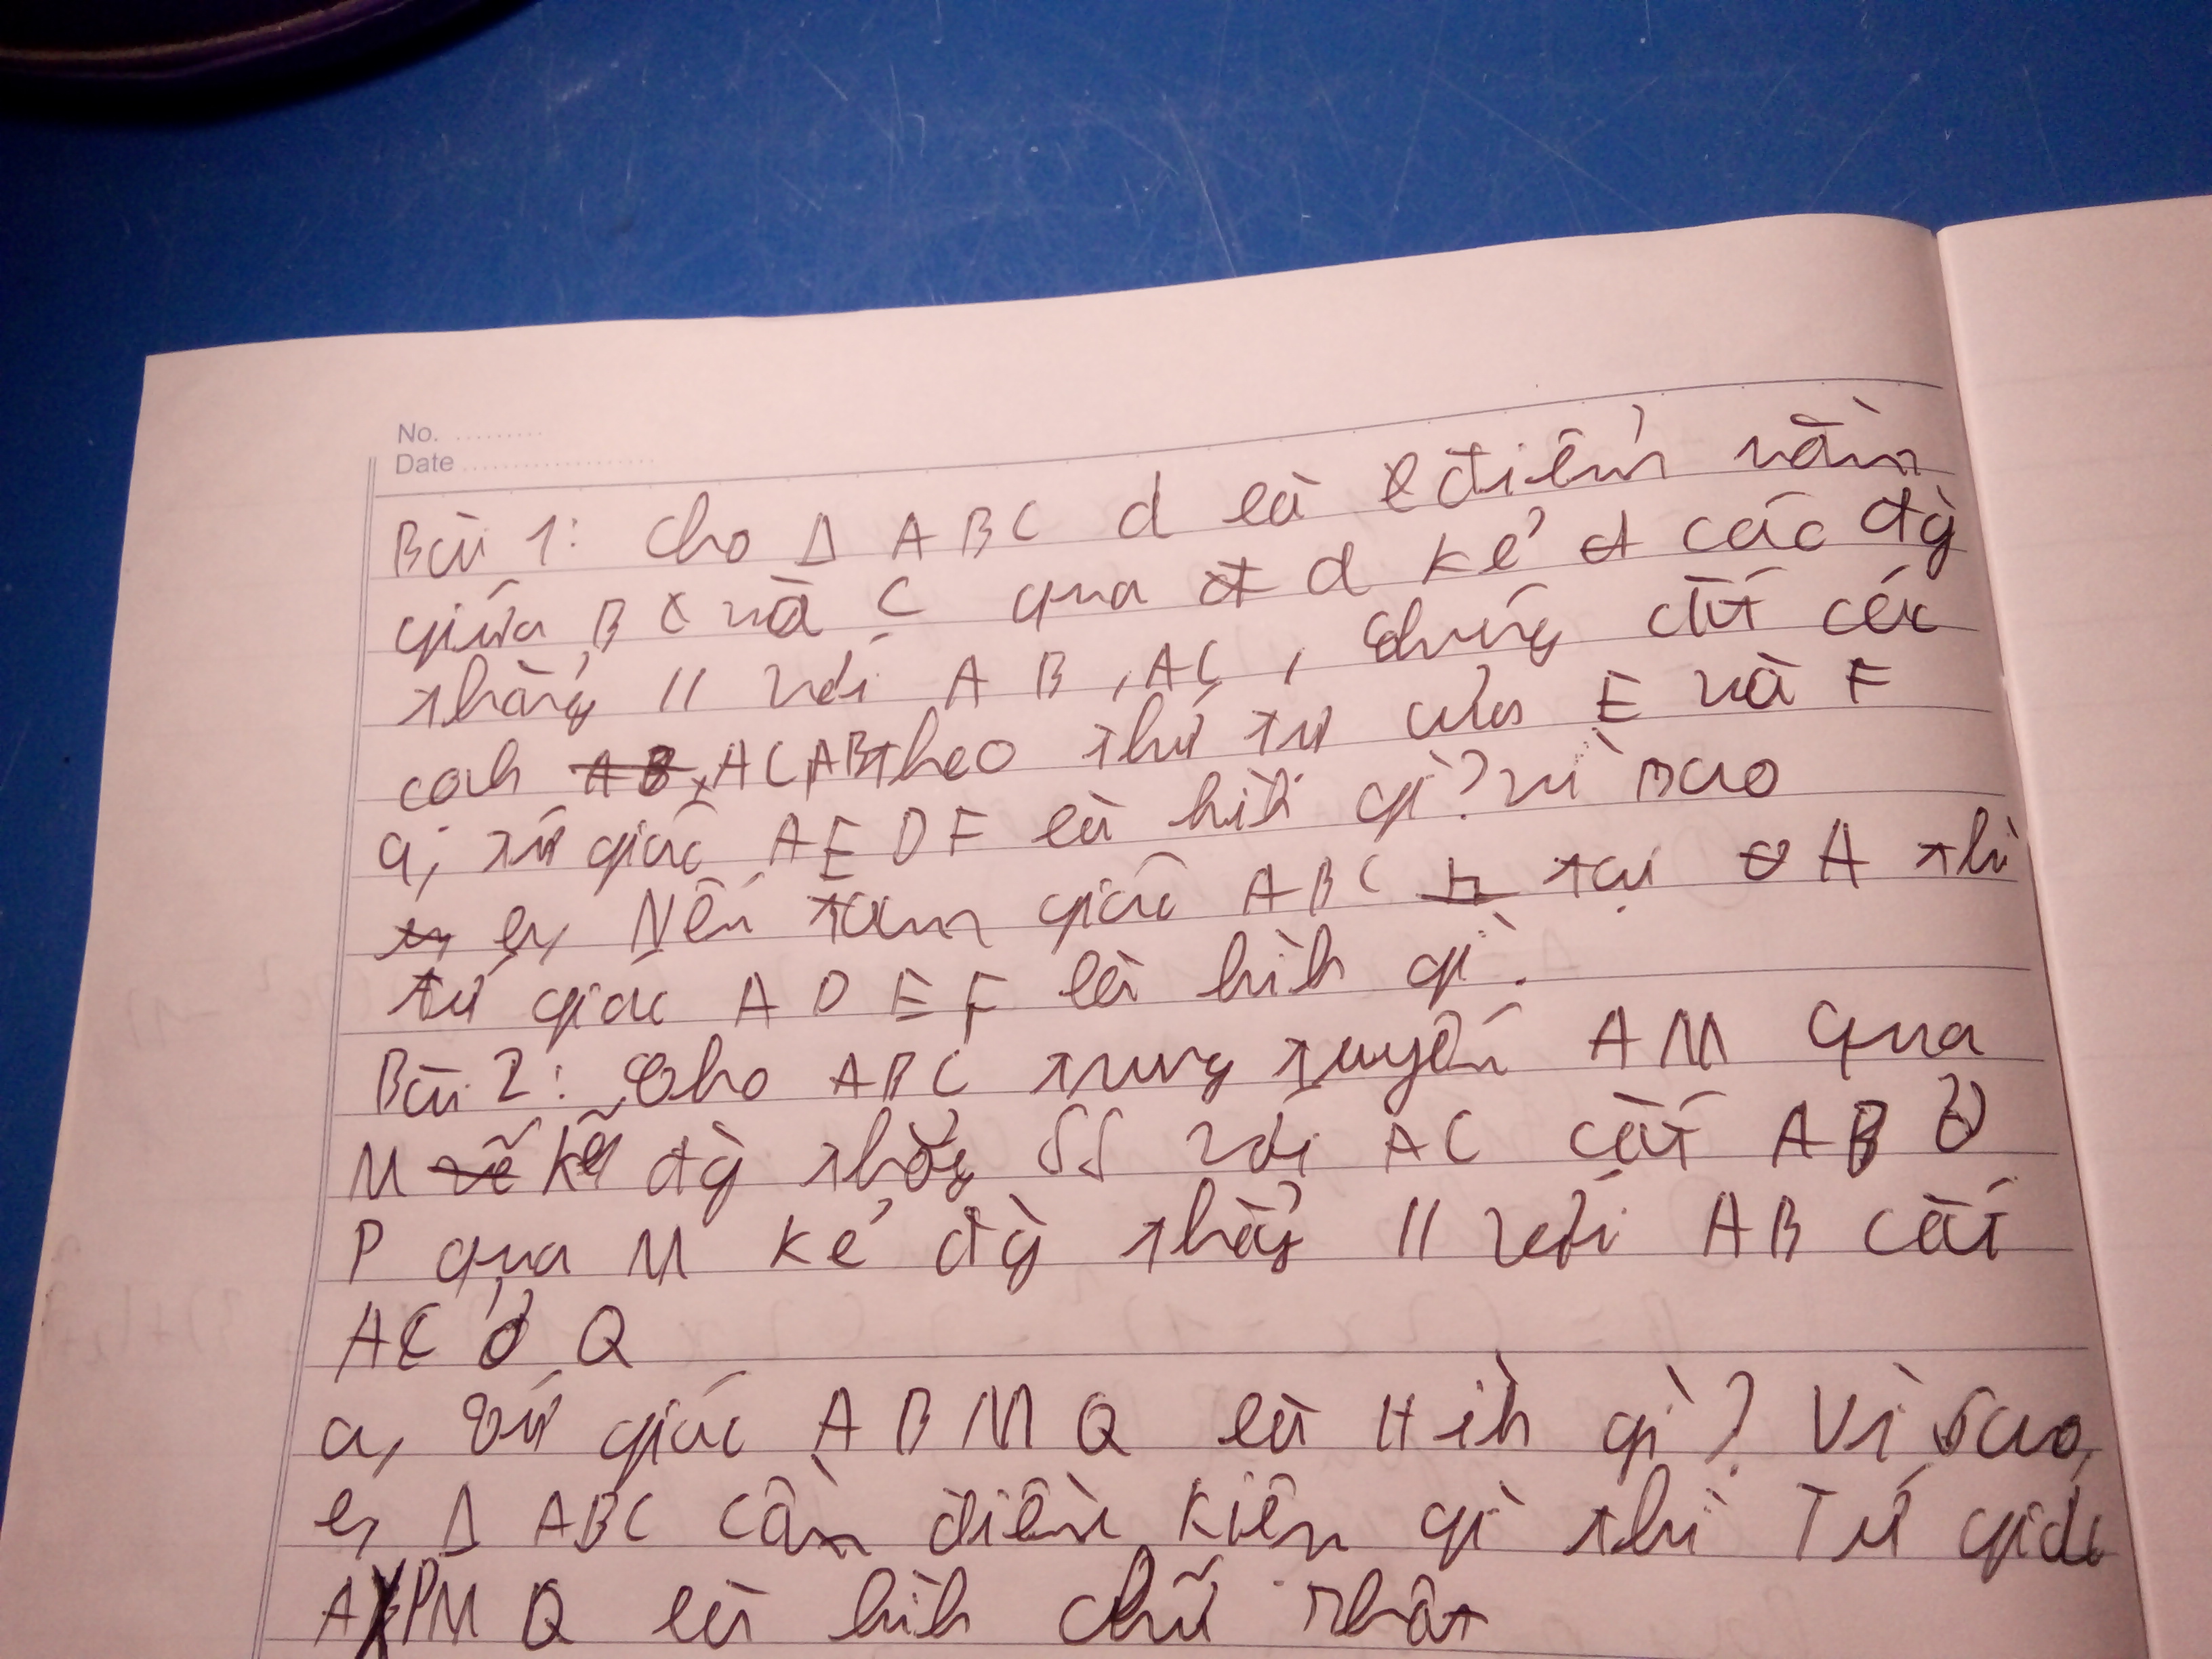 No. .........
Date ....................
Bài 1: Cho Δ ABC d là điểm nằm
giữa B và C qua d kẻ các đg
thẳng // với AB, AC, chúng cắt các
cạnh AC, AB theo thứ tự E và F
a, tứ giác AEDF là hìh gì? vì sao
b, Nếu tam giác ABC tại A thì
tứ giác ADEF là hìh gì.
Bài 2: Cho ABC trung tuyến AM qua
M kẻ đg thẳg SS với AC cắt AB ở
P qua M kẻ đg thẳg // với AB cắt
AC ở Q
a, Tứ giác ABMQ là Hìh gì? Vì sao,
b, Δ ABC cần điều kiện gì thì Tứ giác
APMQ là hìh chữ nhật